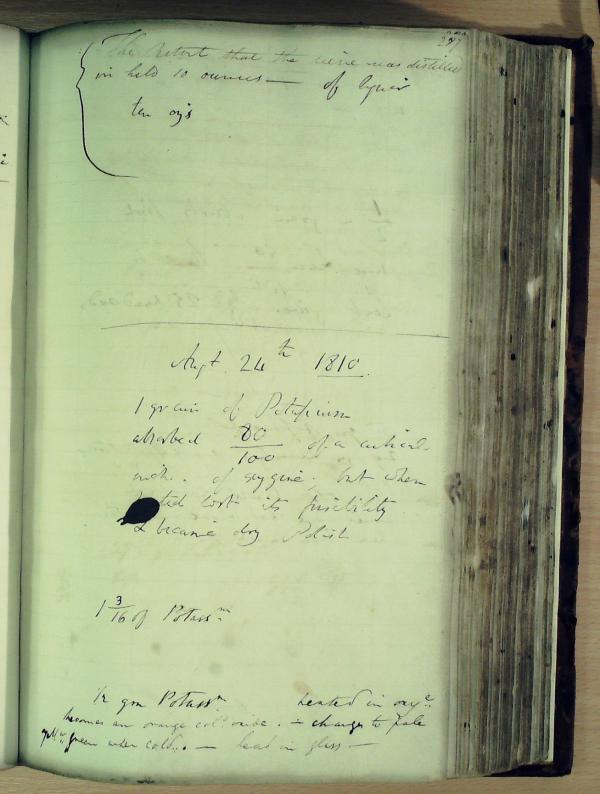 277
The Retort that the wine was distilled
in held 10 ounces — of liquor
ten ozs
Augt. 24th 1810.
1 grain of Potassium
absorbed 80/100 of a cubical
inch. of oxygene; but when
lost its fusibility
& became dry Potash
1 3/16 of Potassm
½ grn Potassm heated in oxye
becomes an orange cold oxide. — changes to pale
green when cold. — heat in glass —